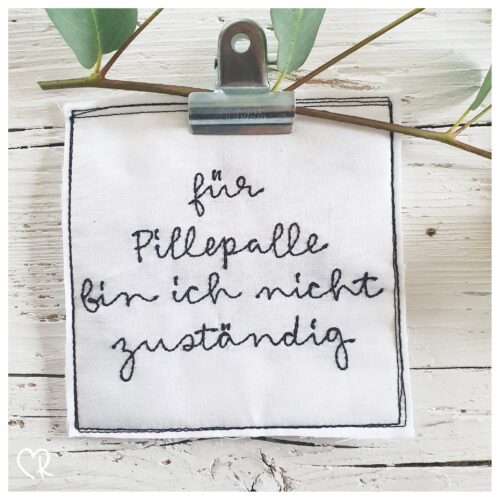 für
Pillepalle
bin ich nicht
zuständig
R